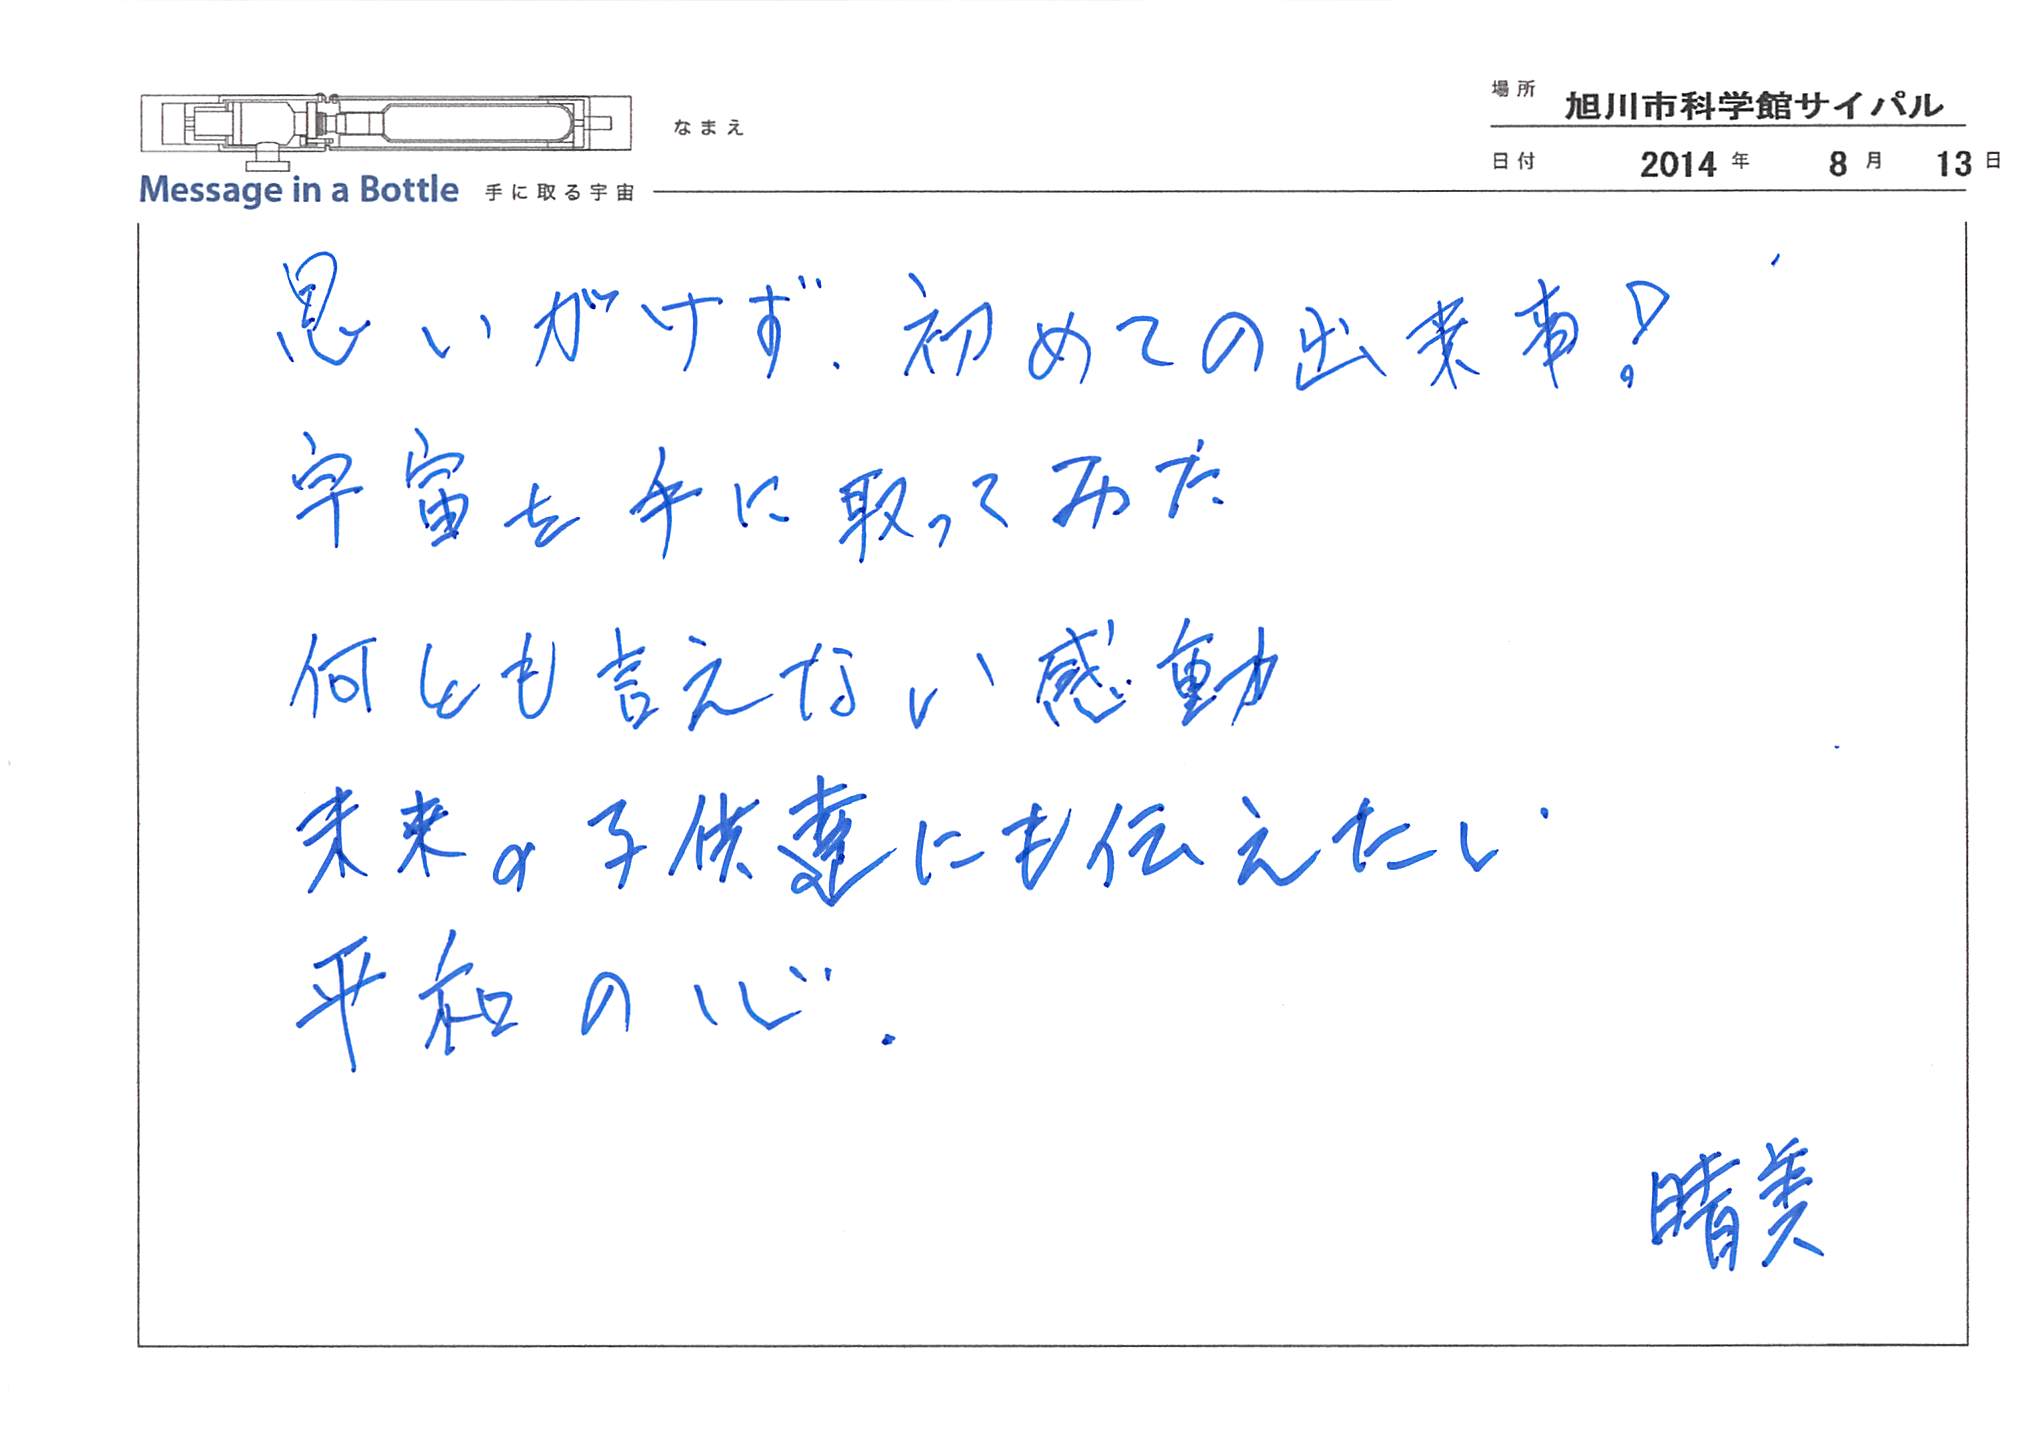 場所 旭川市科学館サイパル
なまえ
日付 2014 年 8 月 13 日
Message in a Bottle 手に取る宇宙
思いがけず、初めての出来事!
宇宙を手に取ってみた
何とも言えない感動
未来の子供達にも伝えたい
平和の心.
晴美